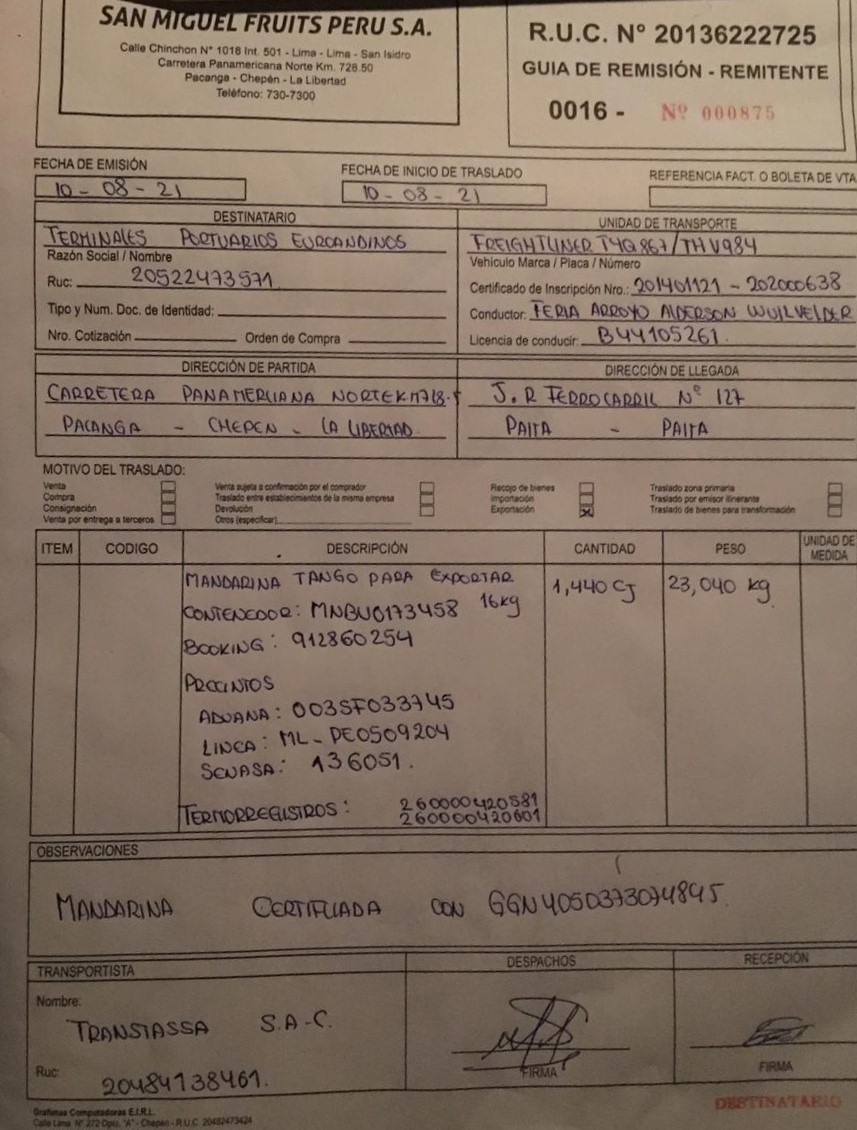 SAN MIGUEL FRUITS PERU S.A.
Calle Chinchon N° 1018 Int. 501 - Lima - Lima - San Isidro
Carretera Panamericana Norte Km. 728.50
Pacanga - Chepén - La Libertad
Teléfono: 730-7300
R.U.C. N° 20136222725
GUIA DE REMISIÓN - REMITENTE
0016 - Nº 000875
FECHA DE EMISIÓN
10 - 08 - 21
FECHA DE INICIO DE TRASLADO
10 - 08 - 21
REFERENCIA FACT. O BOLETA DE VTA
DESTINATARIO
TERMINALES PORTUARIOS EUROANDINOS
Razón Social / Nombre
Ruc: 20522473571
Tipo y Num. Doc. de Identidad:
Nro. Cotización Orden de Compra
UNIDAD DE TRANSPORTE
FREIGHTLINER T4Q867/THV984
Vehículo Marca / Placa / Número
Certificado de Inscripción Nro.: 201401121 - 202000638
Conductor: FERIA ARROYO ALDERSON WUILVELDER
Licencia de conducir: B44105261
DIRECCIÓN DE PARTIDA
CARRETERA PANAMERICANA NORTE KM 728.5
PACANGA - CHEPEN - LA LIBERTAD
DIRECCIÓN DE LLEGADA
J.R FERROCARRIL Nº 127
PAITA - PAITA
MOTIVO DEL TRASLADO:
Venta
Compra
Consignación
Venta por entrega a terceros
Venta sujeta a confirmación por el comprador
Traslado entre establecimientos de la misma empresa
Devolución
Otros (especificar)
Recojo de bienes
Importación
Exportación X
Traslado zona primaria
Traslado por emisor itinerante
Traslado de bienes para transformación
ITEM CODIGO DESCRIPCIÓN CANTIDAD PESO UNIDAD DE MEDIDA
MANDARINA TANGO PARA EXPORTAR 1,440 CJ 23,040 kg
CONTENEDOR: MNBU0173458 16kg
BOOKING: 912860254
PRECINTOS
ADUANA: 003SF033745
LINEA: ML-PE0509204
SENASA: 136051.
TERMORREGISTROS: 260000420581
260000420601
OBSERVACIONES
MANDARINA CERTIFICADA CON GGN 4050373074845.
TRANSPORTISTA
Nombre:
TRANSTASSA S.A-C.
Ruc: 20484138461.
DESPACHOS
FIRMA
RECEPCIÓN
FIRMA
DESTINATARIO
Grafimas Computadoras E.I.R.L.
Calle Lima N° 272 Dpto. "A" - Chepén - R.U.C. 20482473424